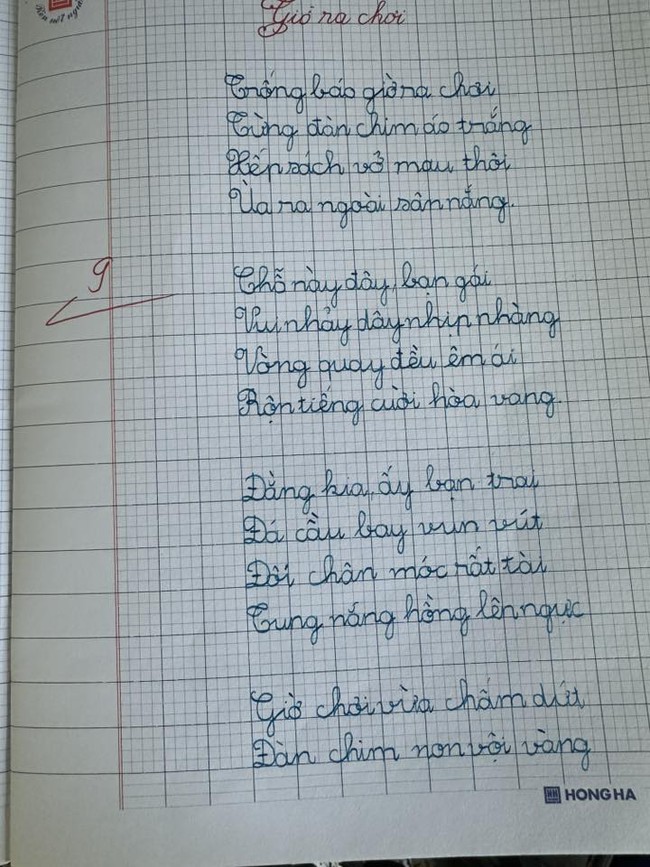 Giờ ra chơi
Trống báo giờ ra chơi
Từng đàn chim áo trắng
Xếp sách vở mau thôi
Ùa ra ngoài sân nắng.
9
Chỗ này đây, bạn gái
Vui nhảy dây nhịp nhàng
Vòng quay đều êm ái
Rộn tiếng cười hòa vang.
Đằng kia, ấy bạn trai
Đá cầu bay vun vút
Đôi chân móc rất tài
Tung nắng hồng lên ngực
Giờ chơi vừa chấm dứt
Đàn chim non vội vàng
HONG HA